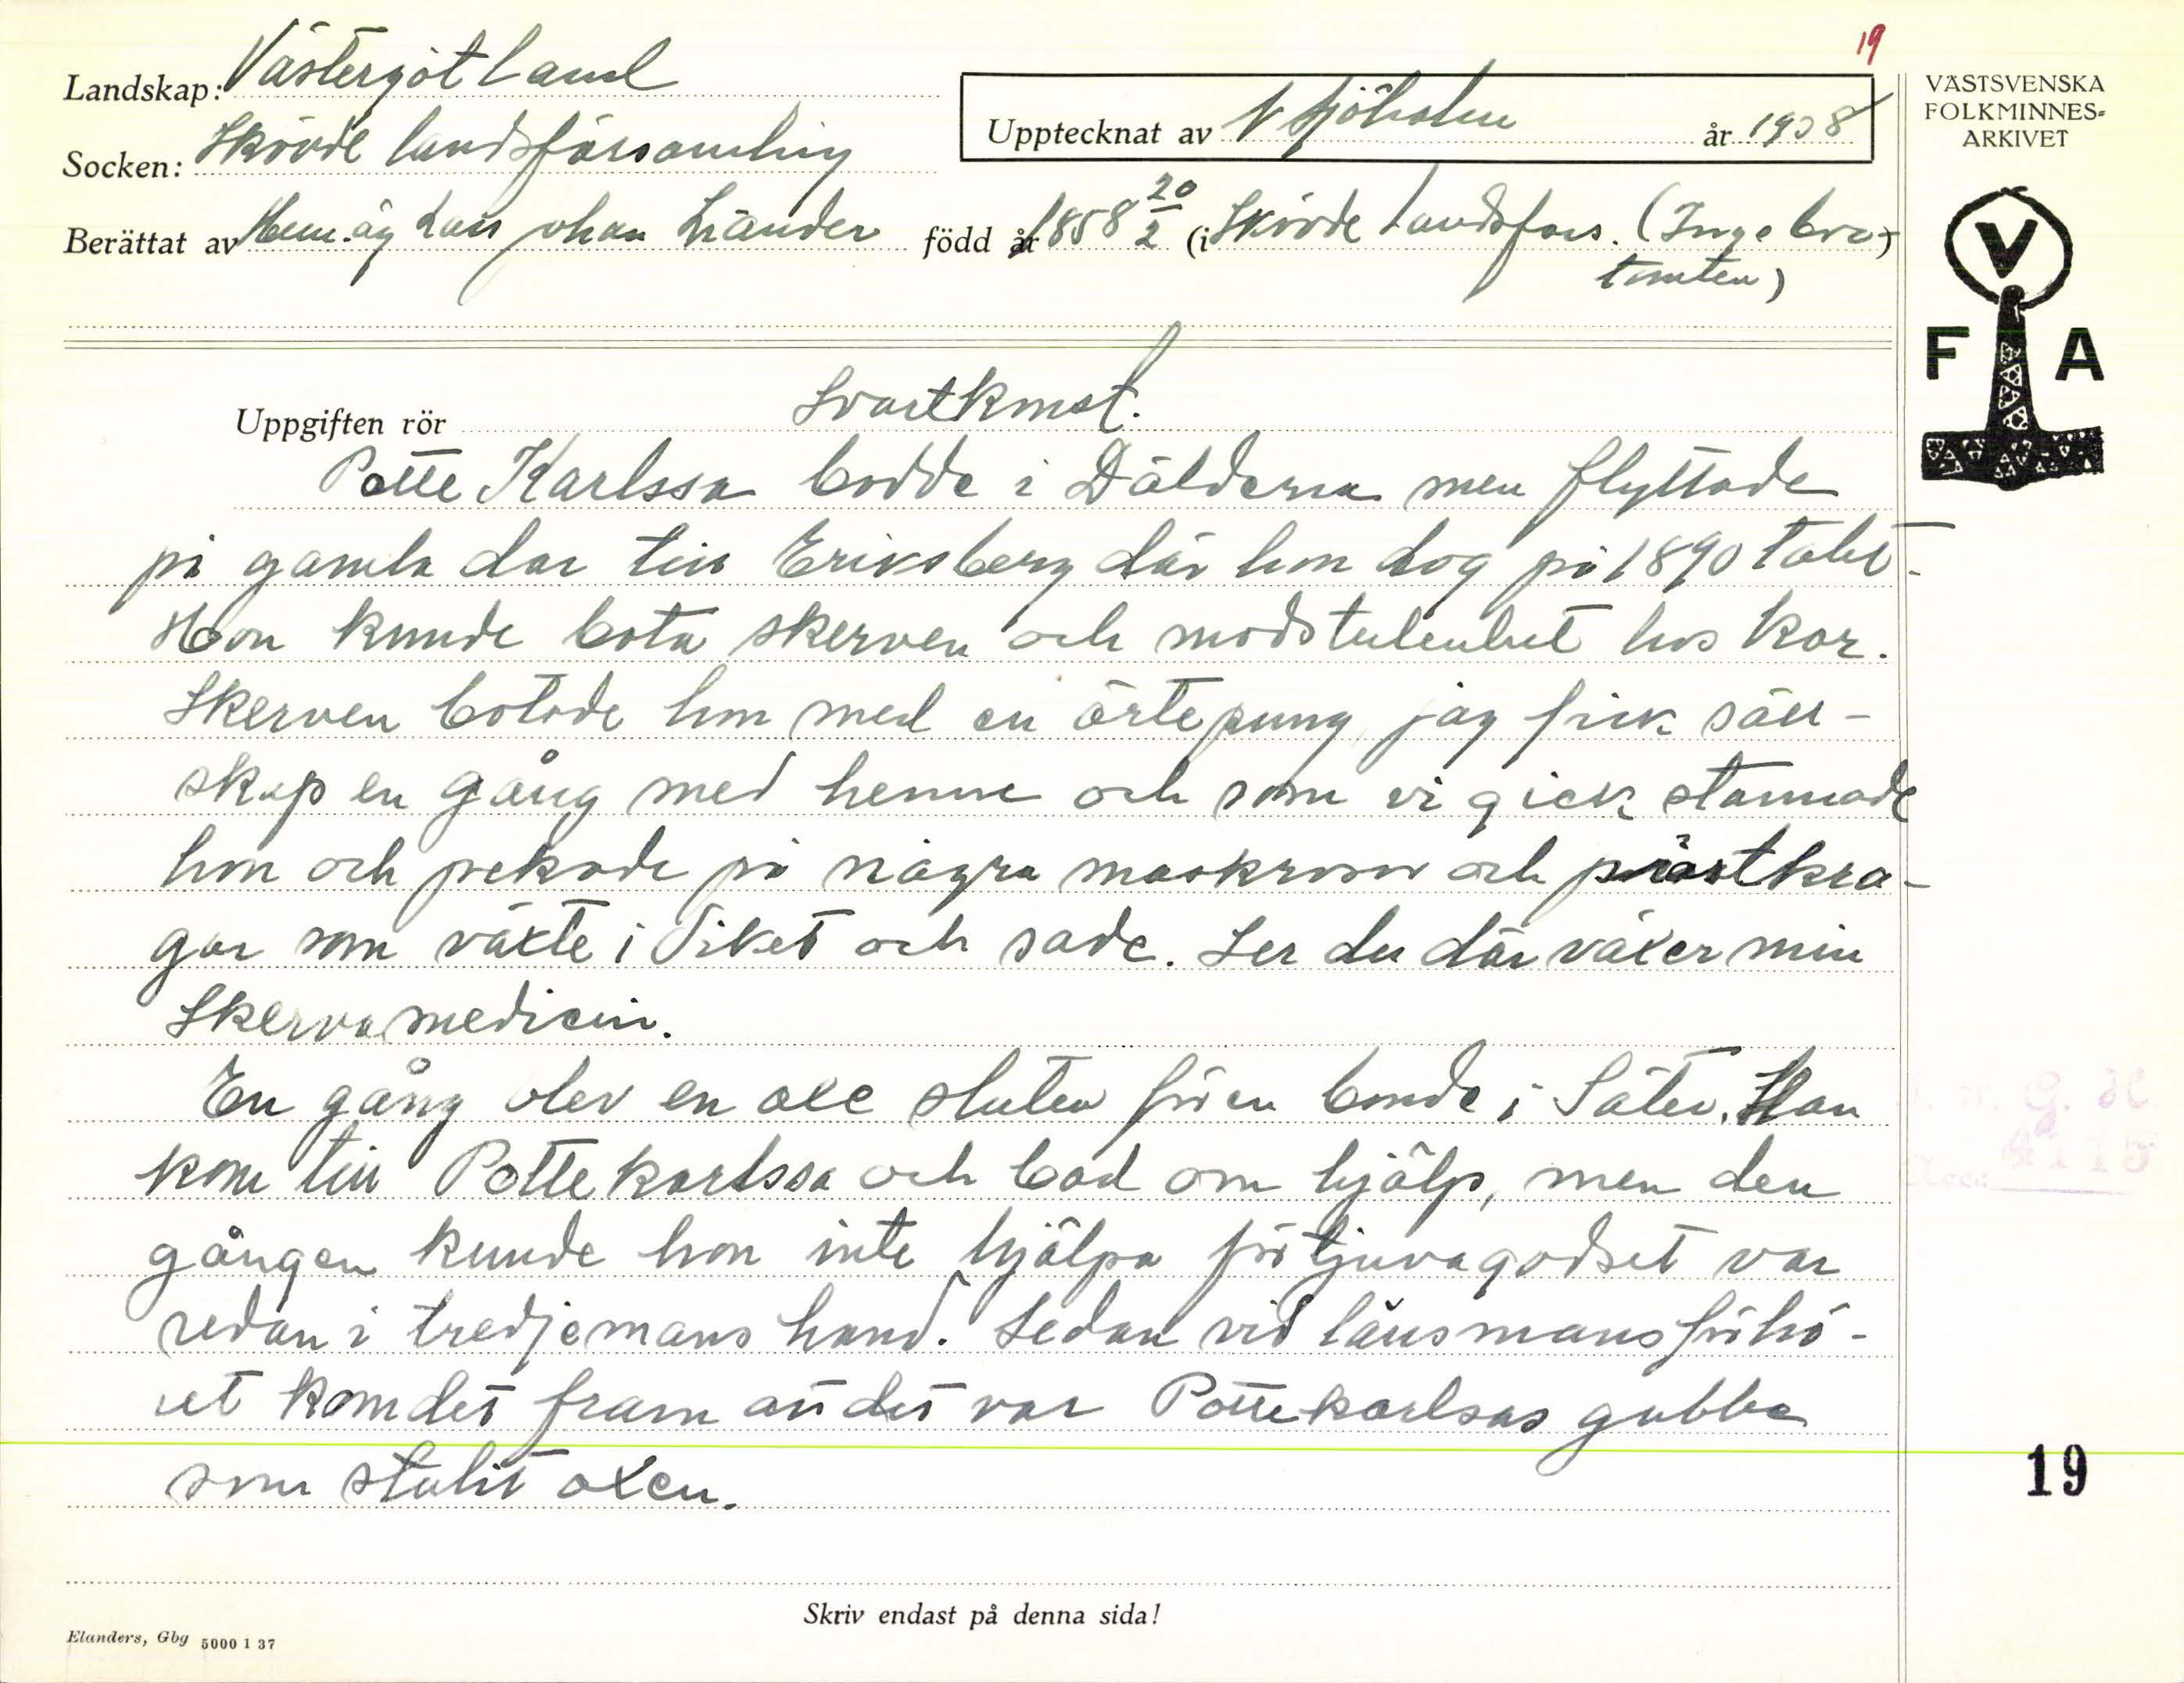 19
Landskap: Västergötland
Socken: Skövde landsförsamling
Upptecknat av N Sjöholm år 1938
Berättat av Hem.äg Lars Johan Linander född år 1858 20/2 (i Skövde landsförs. (Ingebro-)
tomten)
VÄSTSVENSKA
FOLKMINNES-
ARKIVET
V
F A
Uppgiften rör Svartkonst.
Potte Karlssa bodde i Dälderna men flyttade
på gamla dar till Eriksberg där hon dog på 1890 talet.
Hon kunde bota skerven och modstulenhet hos kor.
Skerven botade hon med en örtepung, jag fick säll-
skap en gång med henne och som vi gick stannade
hon och pekade på några maskrosor och prästkra-
gar som växte i diket och sade. Ser du där växer min
Skervamedicin.
En gång blev en oxe stulen för en bonde i Säter. Han
kom till Pottekarlssa och bad om hjälp, men den
gången kunde hon inte hjälpa för tjuvagodset var
redan i tredjemans hand. Sedan vid länsmansförhö-
ret kom det fram att det var Pottekarlsas gubbe
som stulit oxen.
G. H.
4115
19
Skriv endast på denna sida!
Elanders, Gbg 5000 1 37